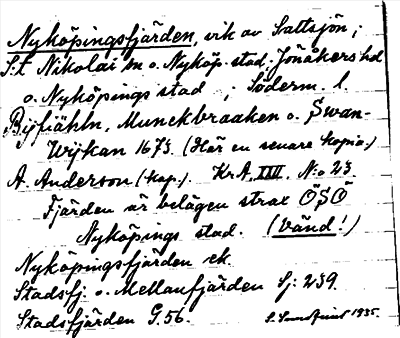 Nyköpingsfjärden, vik av Saltsjön;
S:t Nikolai sn o. Nyköp. stad. Jönåkers hd
o. Nyköpings stad ; Söderm. l.
Bijfiähln, Munckbraaken o. Swan-
Wijkan 1673. (Här en senare kopia.)
A. Anderson (kop.). KrA, XIII, N:o 23.
Fjärden är belägen strax ÖSÖ
Nyköpings stad. (Vänd!)
Nyköpingsfjärden ek.
Stadsfj. o. Mellanfjärden Sj: 239
Stadsfjärden G.56. 1935.